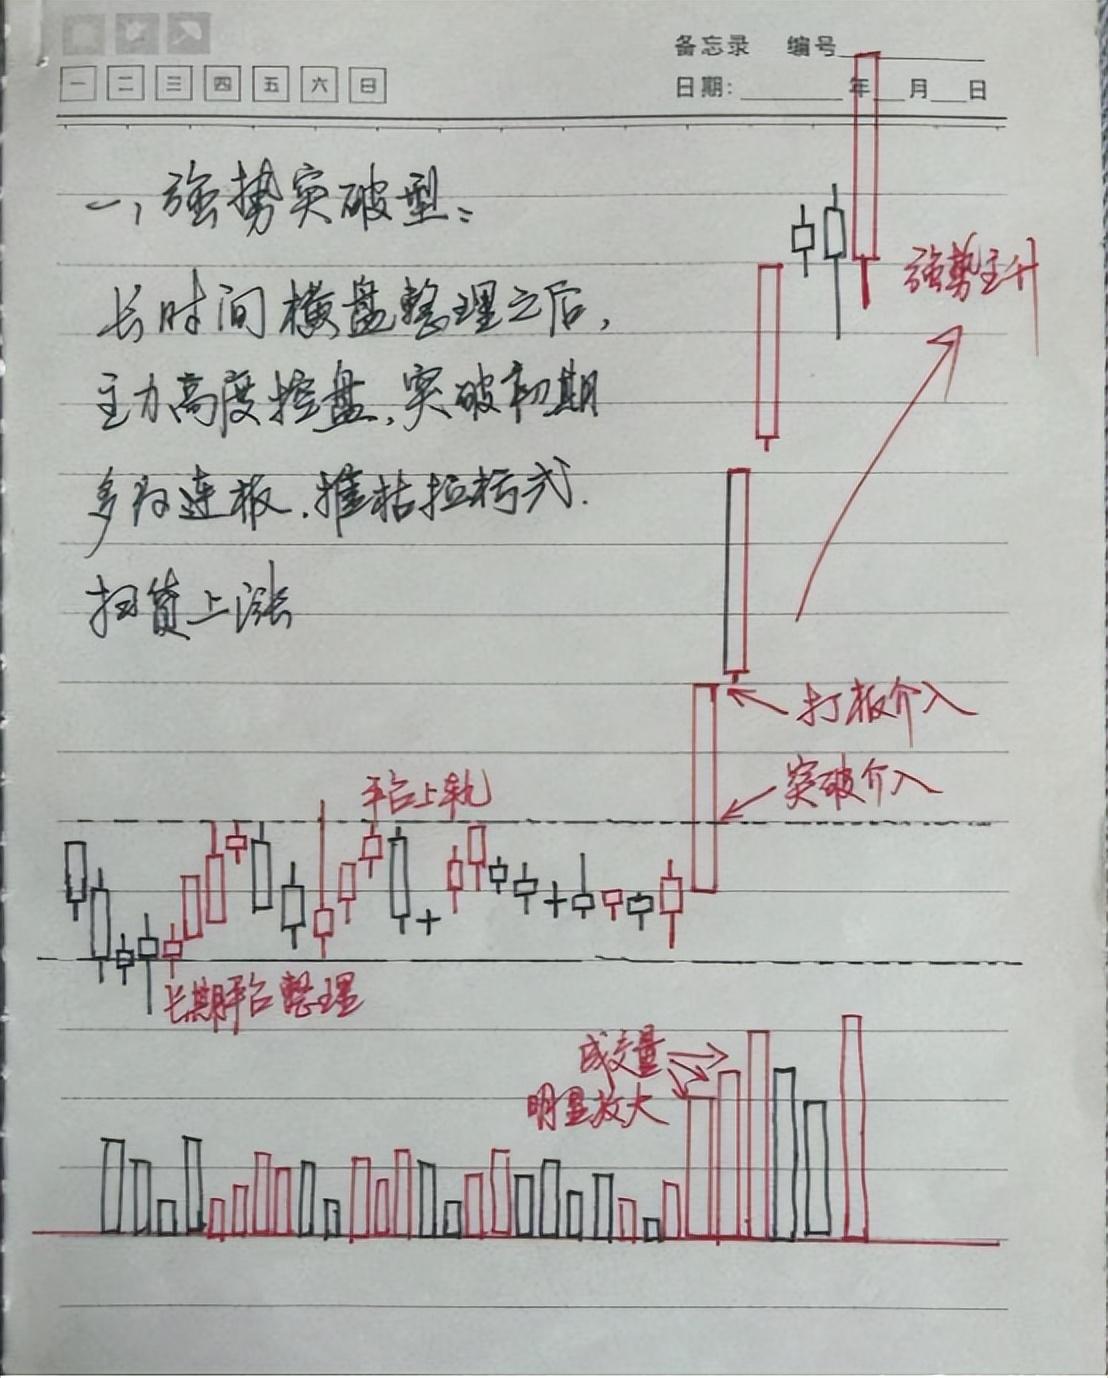 备忘录 编号
一 二 三 四 五 六 日
日期: 年 月 日
一、强势突破型:
长时间横盘整理之后,
主力高度控盘,突破初期
多为连板,摧枯拉朽式.
扫货上涨
强势主升
打板介入
突破介入
平台上轨
长期平台整理
成交量
明显放大